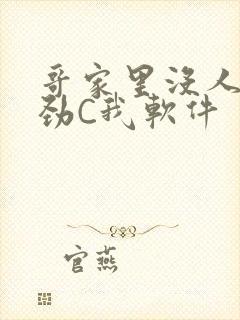 哥家里没人
劲C我软件
官燕